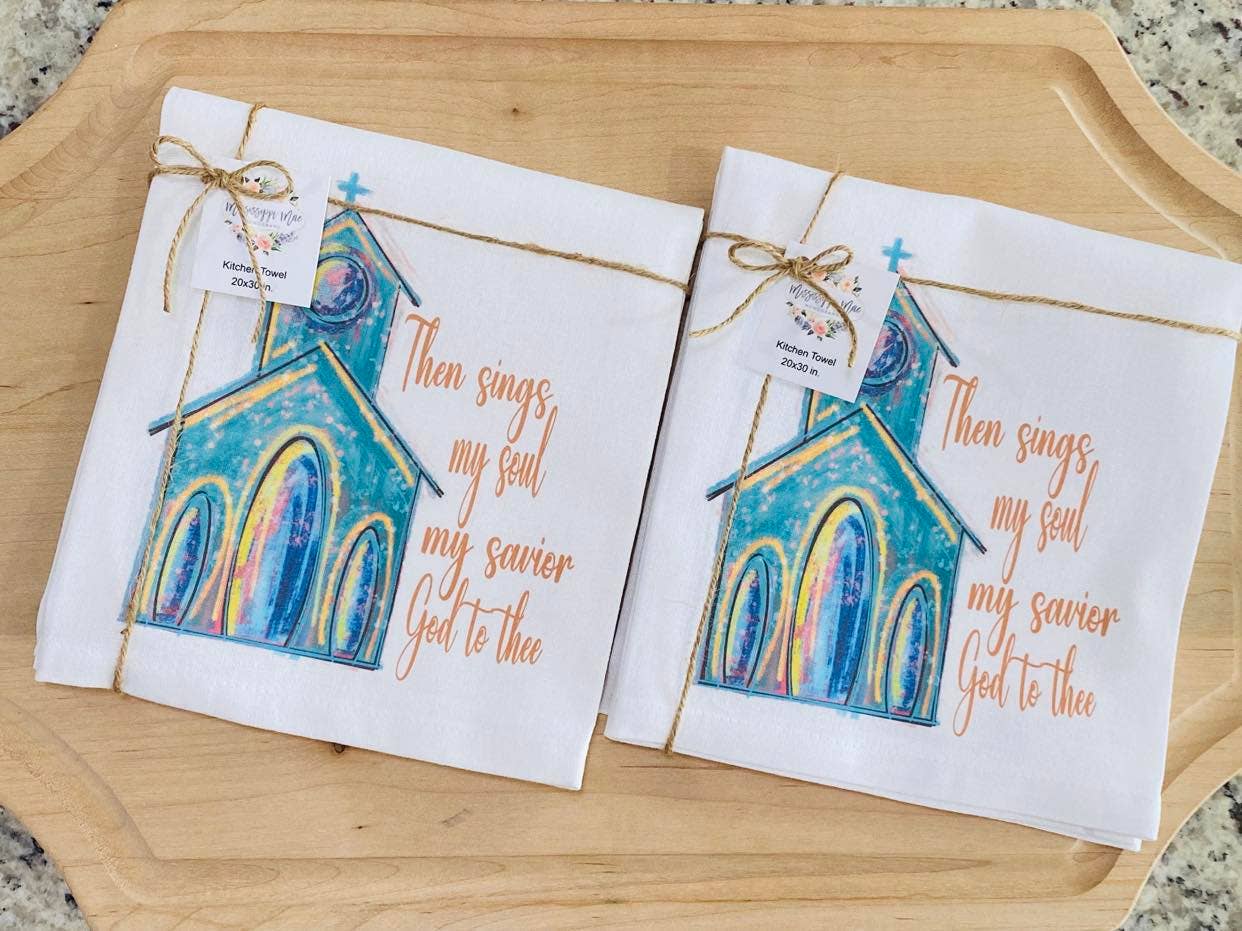 Mississippi Mae
Kitchen Towel
20x30 in.
Then sings
my soul
my savior
God to thee
Mississippi Mae
Kitchen Towel
20x30 in.
Then sings
my soul
my savior
God to thee